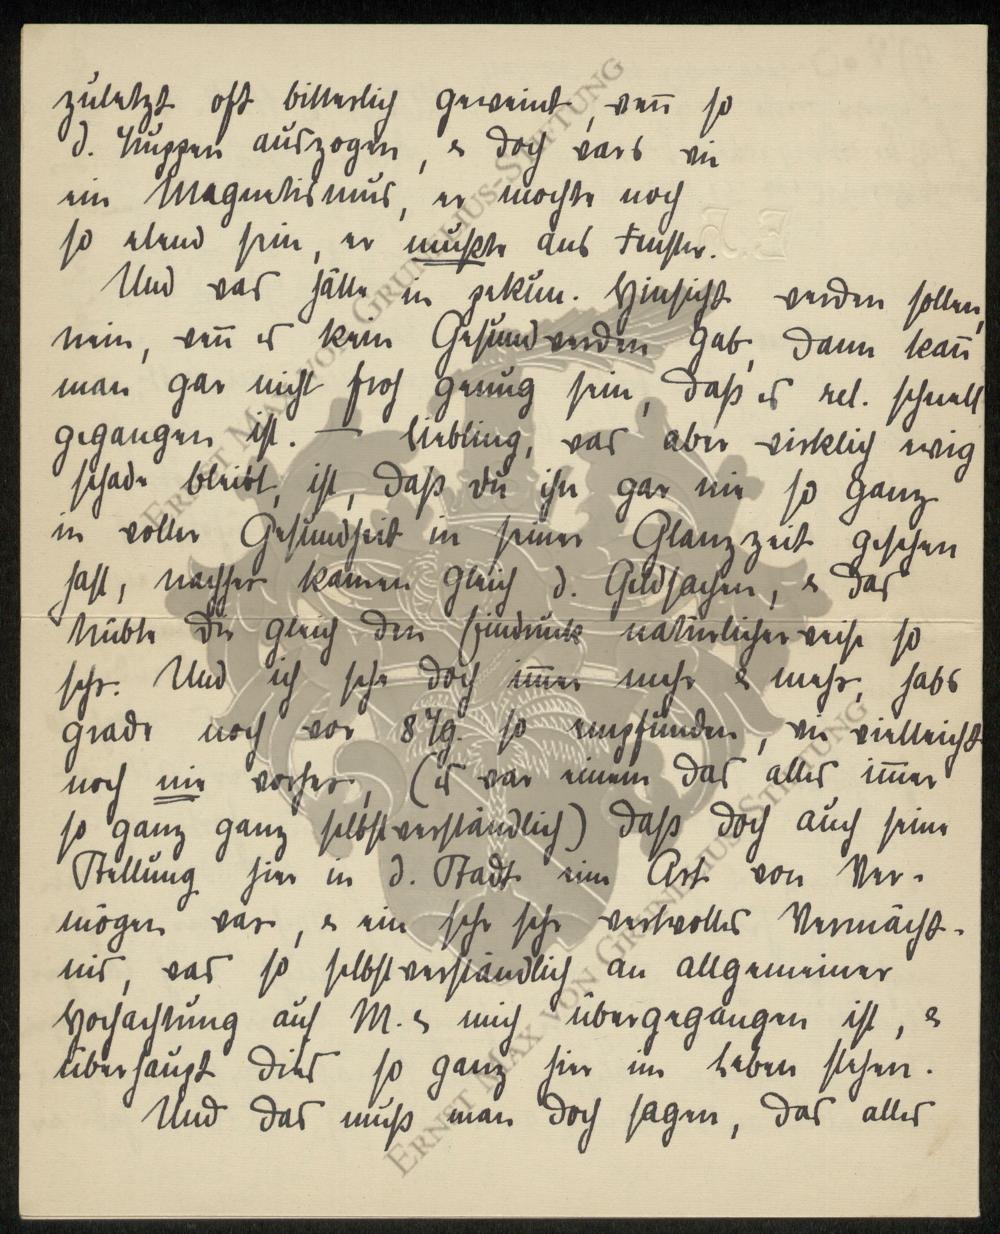 zuletzt oft bitterlich geweint, wen̄ so
d. Truppen auszogen, & doch wars wie
ein Magnetismus, er mochte noch
so elend sein, er mußte ans Fenster.
Und was hätte in pekun. Hinsicht werden sollen,
nein, wen̄ es kein Gesundwerden gab, dann kan̄
man gar nicht froh genug sein, daß es rel. schnell
gegangen ist. — Liebling, was aber wirklich ewig
schade bleibt, ist, daß du ihn gar nie so ganz
in voller Gesundheit in seiner Glanzzeit gesehen
hast, nachher kamen gleich d. Geldsachen, & das
trübte dir gleich den Eindruck natürlicherweise so
sehr. Und ich sehe doch im̄er mehr & mehr, habs
grade noch vor 8 Tg. so empfunden, wie vielleicht
noch nie vorher, (es war einem das alles im̄er
so ganz ganz selbstverständlich) daß doch auch seine
Stellung hier in d. Stadt eine Art von Ver-
mögen war, & ein sehr sehr wertvolles Vermächt-
nis, was so selbstverständlich an allgemeiner
Hochachtung auf M. & mich übergegangen ist, &
überhaupt dies so ganz hier im Leben stehen.
Und das muß man doch sagen, das alles
E.h.
ERNST MAX VON GRUNELIUS-STIFTUNG
ERNST MAX VON GRUNELIUS-STIFTUNG